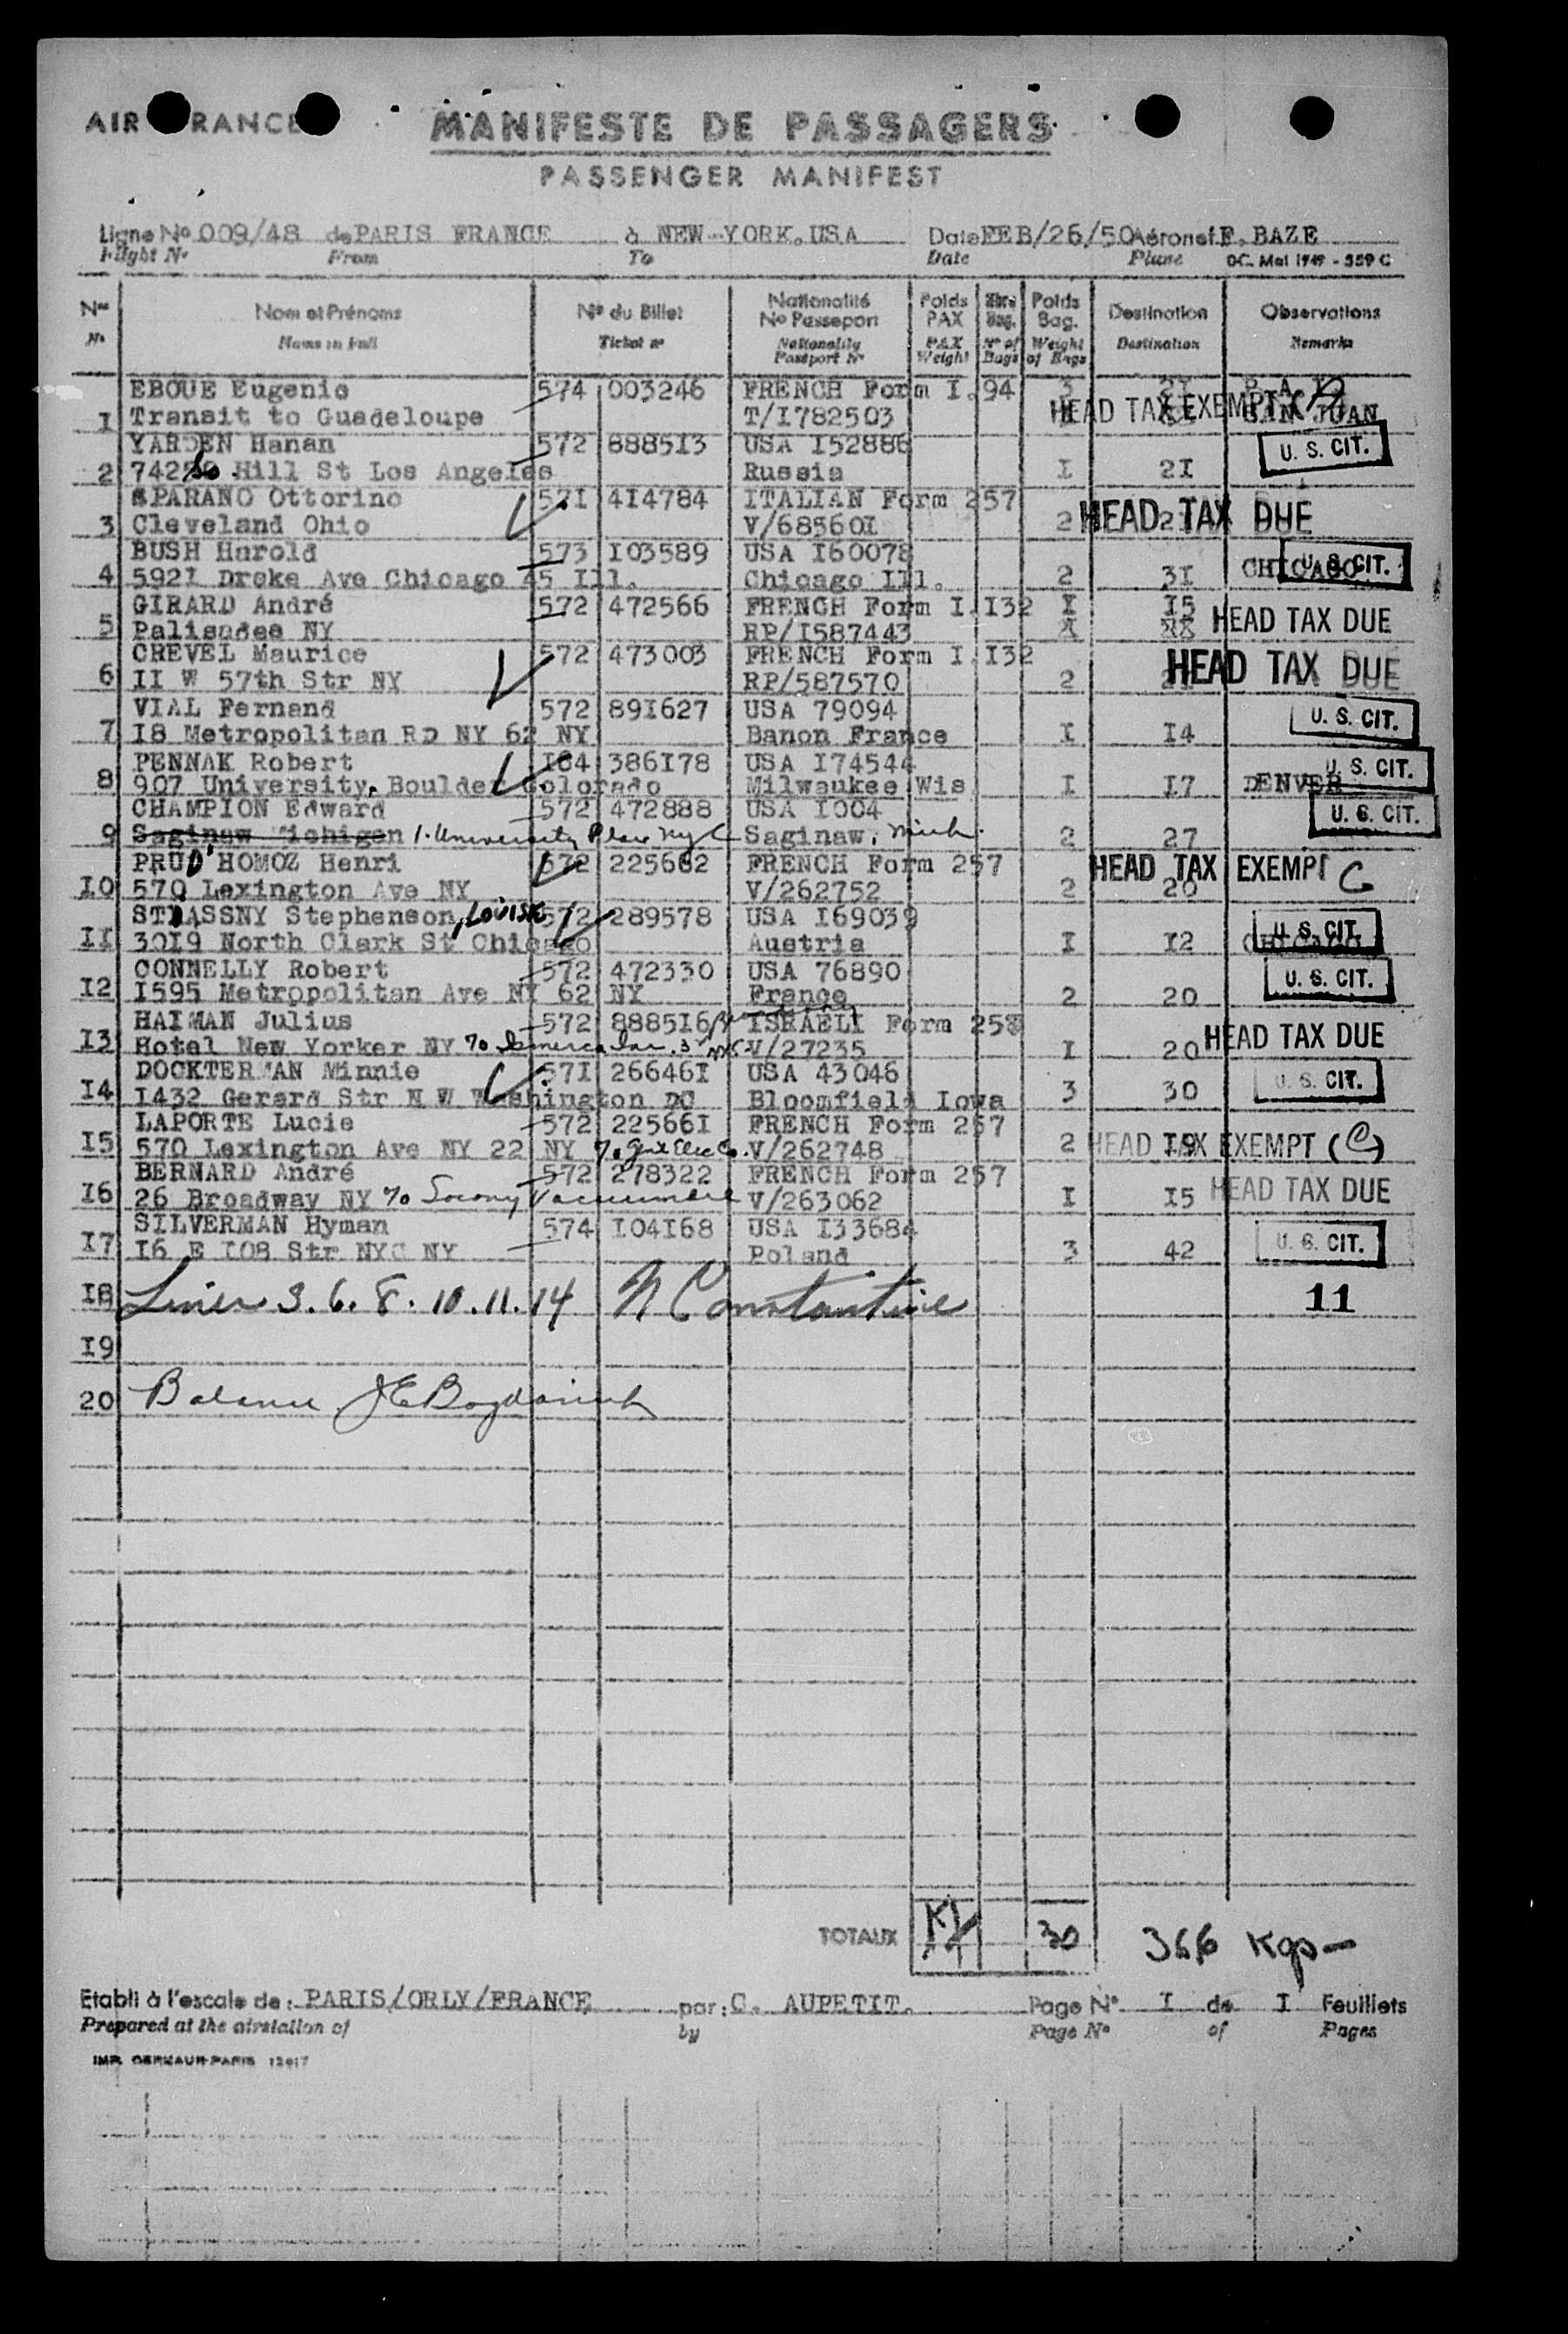 AIR FRANCE
MANIFESTE DE PASSAGERS
PASSENGER MANIFEST
Ligne No 009/48 de PARIS FRANCE à NEW-YORK.USA Date FEB/26/50 Aéronef F. BAZE
Flight No From To Date Plane DC. Mai 1949 - 559 C
Nos Nom et Prénoms No du Billet Nationalité No Passeport Poids PAX Bag. Poids Bag. Destination Observations
No Name in Full Ticket no Nationality Passport No PAX Weight No of Bags Weight of Bags Destination Remarks
EBOUE Eugenie 574 003246 FRENCH Form I.94 3 2I
I Transit to Guadeloupe T/I782503 HEAD TAX EXEMPT SAN JUAN
YARDEN Hanan 572 8885I3 USA I52886 U. S. CIT.
2 Hill St Los Angeles Russia I 2I
SPARANO Ottorino 57I 4I4784 ITALIAN Form 257
3 Cleveland Ohio V/68560I 2 HEAD TAX DUE
BUSH Harold 573 I03589 USA I60078
4 592I Drake Ave Chicago 45 Ill. Chicago Ill. 2 3I CHICAGO U. S. CIT.
GIRARD André 572 472566 FRENCH Form I.I32 I I5
5 Palisades NY RP/I587443 HEAD TAX DUE
CREVEL Maurice 572 473003 FRENCH Form I.I32
6 II W 57th Str NY RP/587570 2 HEAD TAX DUE
VIAL Fernand 572 89I627 USA 79094
7 I8 Metropolitan RD NY 62 NY Banon France I I4 U. S. CIT.
PENNAK Robert 386I78 USA I74544
8 907 University, Boulder Colorado Milwaukee Wis I I7 DENVER U. S. CIT.
CHAMPION Edward 572 472888 USA I004
9 Saginaw Michigan 1. University Place NYC Saginaw, Mich. 2 27 U. S. CIT.
PRUD'HOMOZ Henri 572 225662 FRENCH Form 257
I0 570 Lexington Ave NY V/262752 2 20 HEAD TAX EXEMPT C
STRASSNY Stephenson, LOUISE 572 289578 USA I69039
II 30I9 North Clark St Chicago Austria I I2 CHICAGO U. S. CIT.
CONNELLY Robert 572 472330 USA 76890
I2 I595 Metropolitan Ave NY 62 NY France 2 20 U. S. CIT.
HAIMAN Julius 572 8885I6 ISRAELI Form 258
I3 Hotel New Yorker NY V/27235 I 20 HEAD TAX DUE
DOCKTERMAN Minnie 57I 26646I USA 43046
I4 I432 Gerard Str N W Washington DC Bloomfield Iowa 3 30 U. S. CIT.
LAPORTE Lucie 572 22566I FRENCH Form 257
I5 570 Lexington Ave NY 22 NY V/262748 2 I9 HEAD TAX EXEMPT (C)
BERNARD André 572 278322 FRENCH Form 257
I6 26 Broadway NY % Socony Vacuum V/263062 I I5 HEAD TAX DUE
SILVERMAN Hyman 574 I04I68 USA I33684
I7 I6 E I08 Str NYC NY Poland 3 42 U. S. CIT.
I8 Lines 3. 6. 8. 10. 11. 14 N Constantine 11
I9
20 Balance
TOTAUX 30 366 Kgs
Etabli à l'escale de: PARIS/ORLY/FRANCE par: C. AUPETIT. Page No I de I Feuillets
Prepared at the airstation of by Page No of Pages
IMP. GERMAUR-PARIS 12417